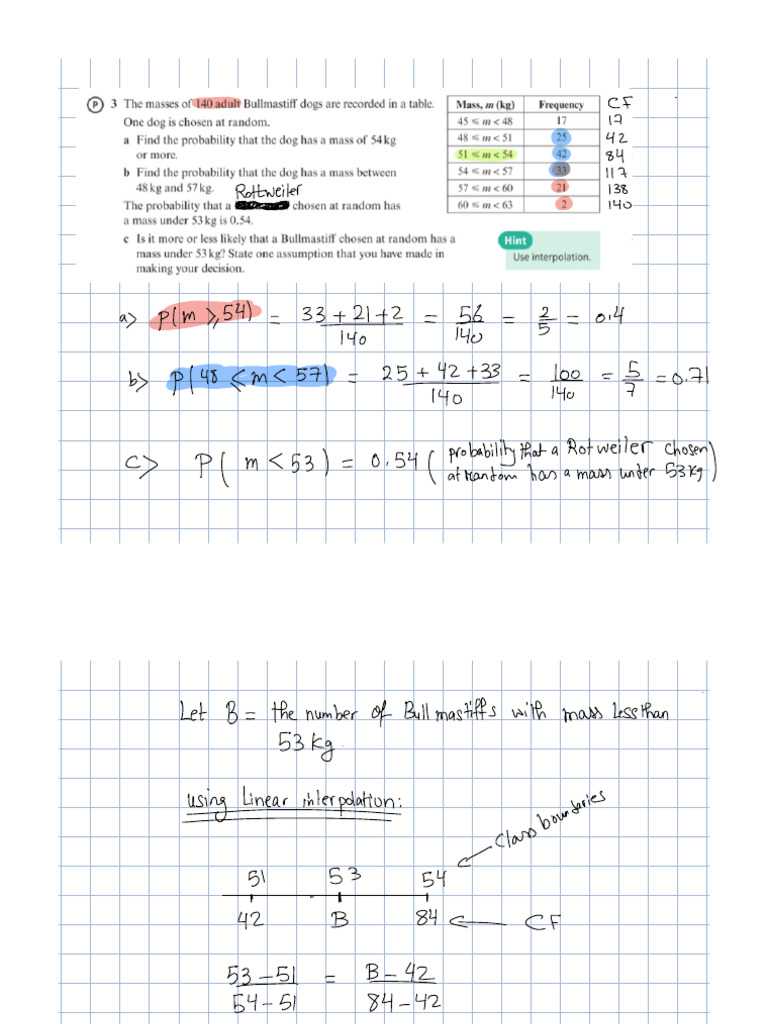 P 3 The masses of 140 adult Bullmastiff dogs are recorded in a table.
One dog is chosen at random.
a Find the probability that the dog has a mass of 54 kg
or more.
b Find the probability that the dog has a mass between
48 kg and 57 kg.
Rottweiler
The probability that a chosen at random has
a mass under 53 kg is 0.54.
c Is it more or less likely that a Bullmastiff chosen at random has a
mass under 53 kg? State one assumption that you have made in
making your decision.
Mass, m (kg) Frequency CF
45 ⩽ m < 48 17 17
48 ⩽ m < 51 25 42
51 ⩽ m < 54 42 84
54 ⩽ m < 57 33 117
57 ⩽ m < 60 21 138
60 ⩽ m < 63 2 140
Hint
Use interpolation.
a> P(m ⩾ 54) = 33 + 21 + 2 / 140 = 56 / 140 = 2 / 5 = 0.4
b> P(48 ⩽ m < 57) = 25 + 42 + 33 / 140 = 100 / 140 = 5 / 7 = 0.71
c> P(m < 53) = 0.54 (probability that a Rotweiler chosen
at random has a mass under 53 kg)
Let B = the number of Bullmastiffs with mass less than
53 kg.
using Linear interpolation:
class boundaries
51 53 54
42 B 84 CF
53 - 51 / 54 - 51 = B - 42 / 84 - 42